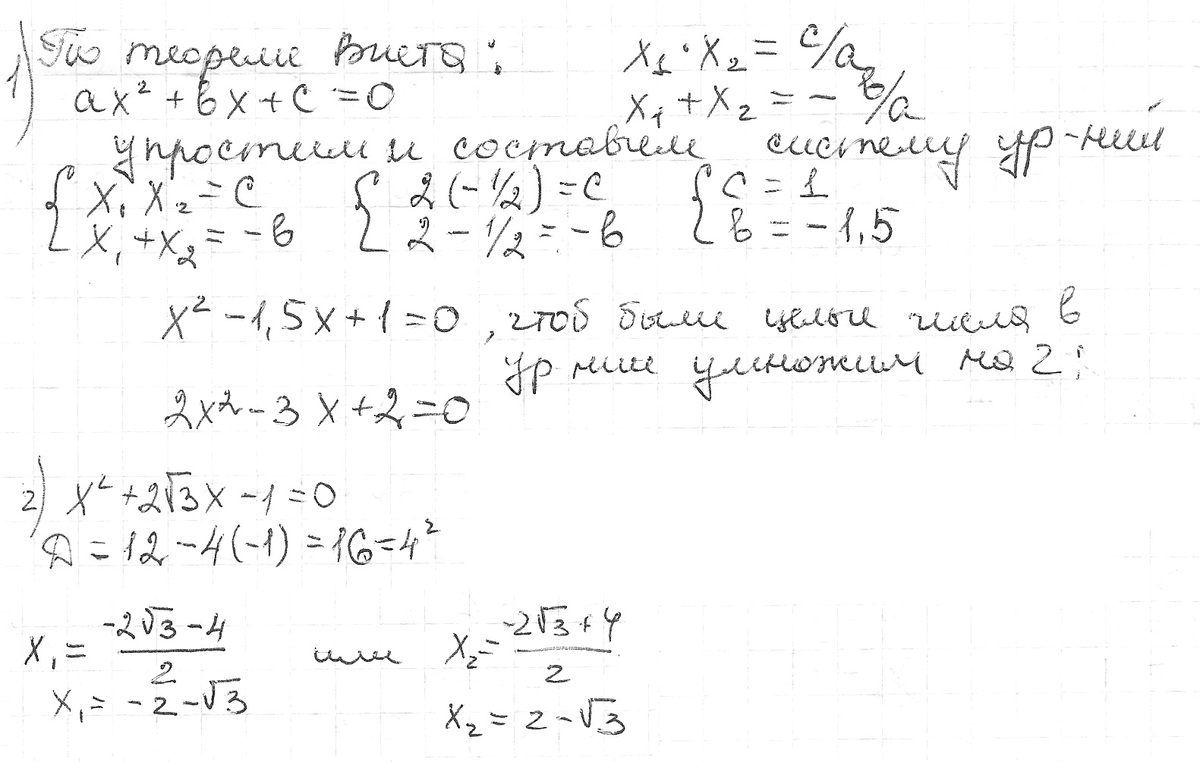 1) По теореме Виета: x₁·x₂ = c/a
ax² + bx + c = 0 x₁ + x₂ = - b/a
упростим и составем систему ур-ний
{ x₁ x₂ = c { 2(-1/2) = c { c = 1
{ x₁ + x₂ = -b { 2 - 1/2 = -b { b = -1,5
x² - 1,5x + 1 = 0, чтоб были целые числа в
ур-нии умножим на 2:
2x² - 3x + 2 = 0
2) x² + 2√3x - 1 = 0
Д = 12 - 4(-1) = 16 = 4²
x₁ = (-2√3 - 4)/2 или x₂ = (-2√3 + 4)/2
x₁ = -2 - √3 x₂ = 2 - √3